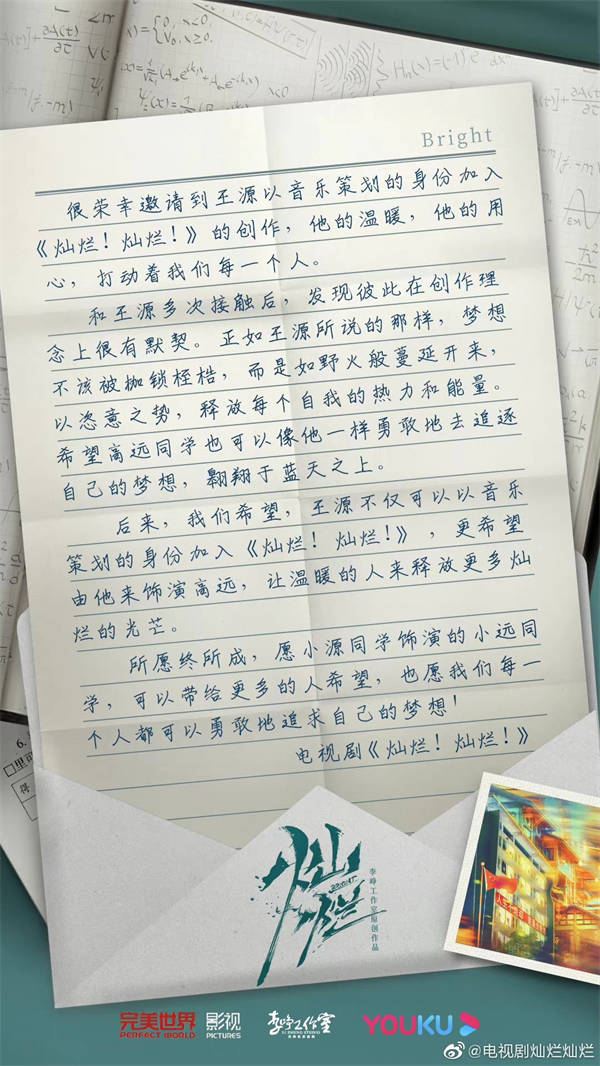 Bright
很荣幸邀请到王源以音乐策划的身份加入
《灿烂！灿烂！》的创作，他的温暖，他的用
心，打动着我们每一个人。
和王源多次接触后，发现彼此在创作理
念上很有默契。正如王源所说的那样，梦想
不该被枷锁桎梏，而是如野火般蔓延开来，
以恣意之势，释放每个自我的热力和能量。
希望高远同学也可以像他一样勇敢地去追逐
自己的梦想，翱翔于蓝天之上。
后来，我们希望，王源不仅可以以音乐
策划的身份加入《灿烂！灿烂！》，更希望
由他来饰演高远，让温暖的人来释放更多灿
烂的光芒。
所愿终所成，愿小源同学饰演的小远同
学，可以带给更多的人希望，也愿我们每一
个人都可以勇敢地追求自己的梦想！
电视剧《灿烂！灿烂！》
灿烂
李峥工作室原创作品
完美世界 影视
PERFECT WORLD PICTURES
李峥工作室
LI ZHENG STUDIO
YOUKU
@电视剧灿烂灿烂